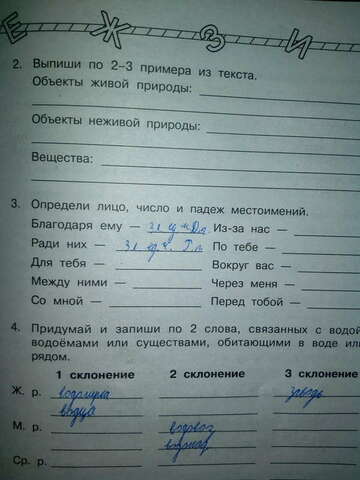 Е Ж З И
2. Выпиши по 2–3 примера из текста.
Объекты живой природы:
Объекты неживой природы:
Вещества:
3. Определи лицо, число и падеж местоимений.
Благодаря ему — 3л ед ч Дп Из-за нас —
Ради них — 3л ед ч. Р.п По тебе —
Для тебя — Вокруг вас —
Между ними — Через меня —
Со мной — Перед тобой —
4. Придумай и запиши по 2 слова, связанных с водой
водоёмами или существами, обитающими в воде или
рядом.
1 склонение 2 склонение 3 склонение
Ж. р. заводь
М. р. водовоз
водопад
Ср. р.